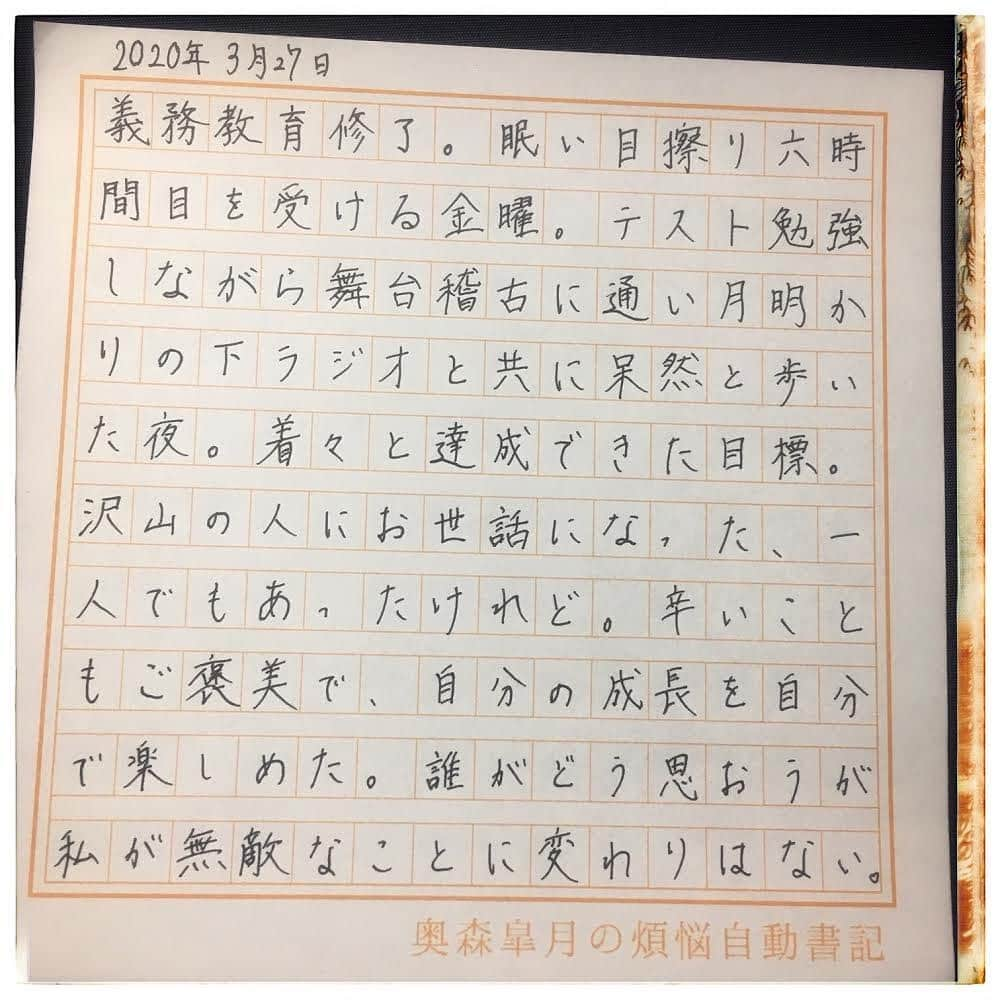 2020年 3月27日
義務教育修了。眠い目擦り六時
間目を受ける金曜。テスト勉強
しながら舞台稽古に通い月明か
りの下ラジオと共に呆然と歩い
た夜。着々と達成できた目標。
沢山の人にお世話になった、一
人でもあったけれど。辛いこと
もご褒美で、自分の成長を自分
で楽しめた。誰がどう思おうが
私が無敵なことに変わりはない。
奥森皐月の煩悩自動書記